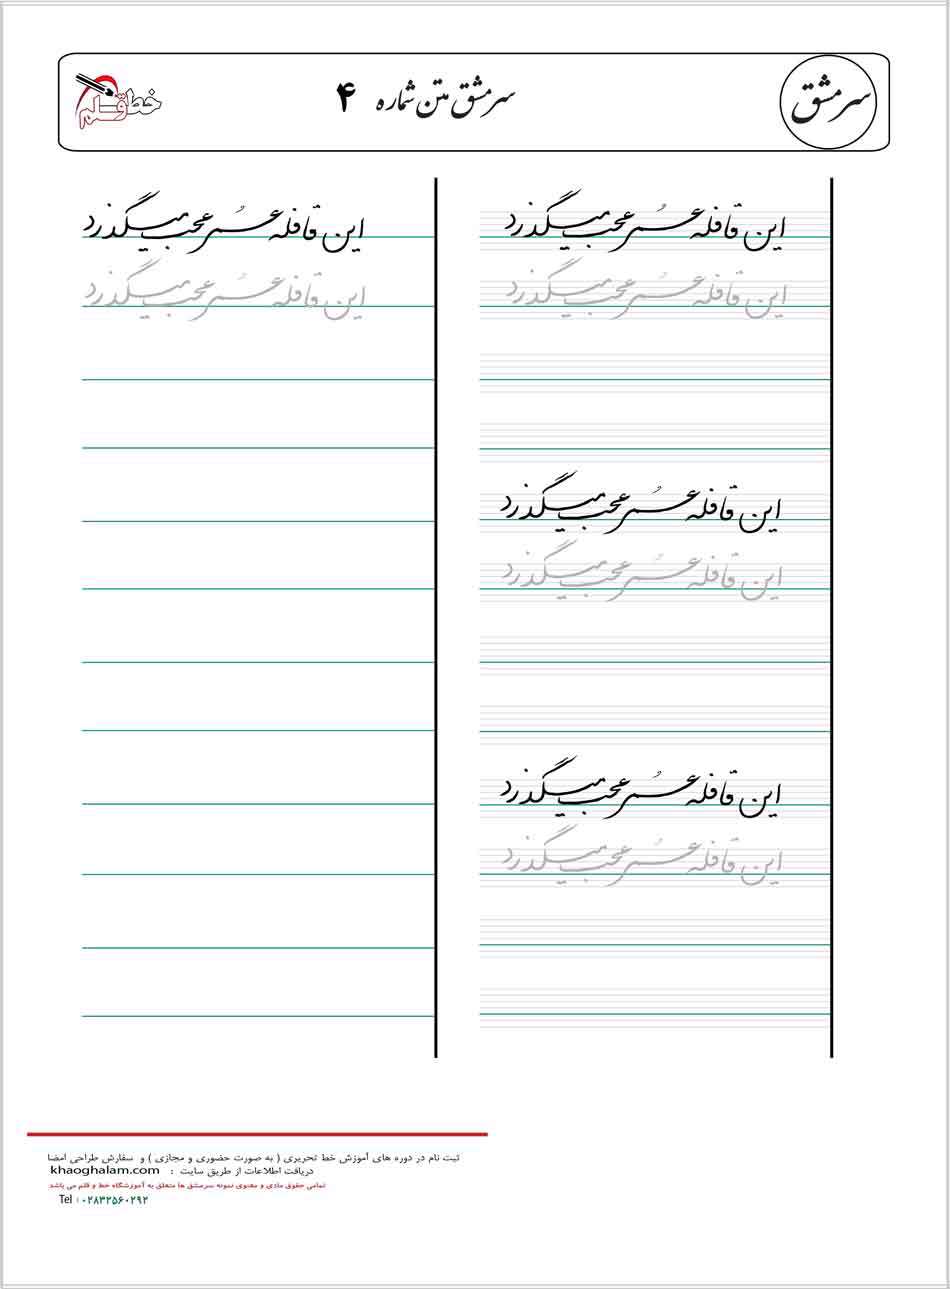 سرمشق
سرمشق متن شماره ۴
خط قلم
این قافله عُمر عجب میگذرد
این قافله عُمر عجب میگذرد
این قافله عُمر عجب میگذرد
این قافله عُمر عجب میگذرد
این قافله عُمر عجب میگذرد
این قافله عُمر عجب میگذرد
این قافله عُمر عجب میگذرد
این قافله عُمر عجب میگذرد
ثبت نام در دوره های آموزش خط تحریری ( به صورت حضوری و مجازی ) و سفارش طراحی امضا
دریافت اطلاعات از طریق سایت : khaoghalam.com
تمامی حقوق مادی و معنوی نمونه سرمشق ها متعلق به آموزشگاه خط و قلم می باشد
Tel : ۰۲۸۳۲۵۶۰۲۹۲